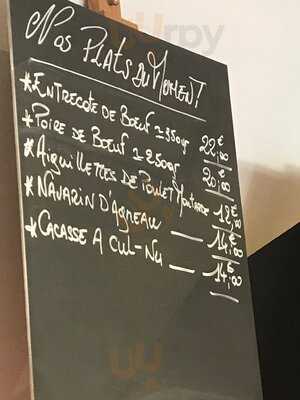 Nos Plats du Moment
* Entrecote de Boeuf ≃ 350gr 22,00€
* Poire de Boeuf ≃ 250gr 20,00€
* Aiguillettes de Poulet Moutarde 18,00€
* Navarin d'Agneau — 14,00€
* Cacasse à Cul-Nu — 14,00€